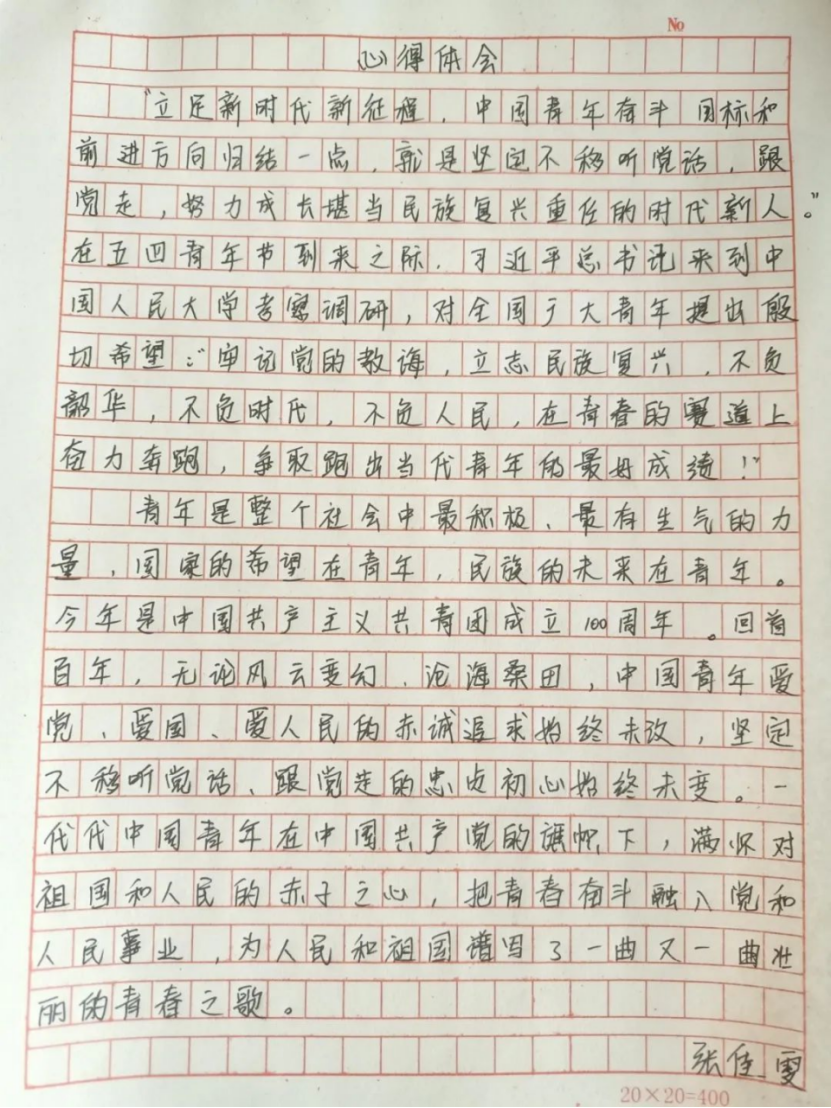 No
心得体会
"立足新时代新征程，中国青年奋斗目标和
前进方向归结一点，就是坚定不移听党话，跟
党走，努力成长堪当民族复兴重任的时代新人。"
在五四青年节到来之际，习近平总书记来到中
国人民大学考察调研，对全国广大青年提出殷
切希望："牢记党的教诲，立志民族复兴，不负
韶华，不负时代，不负人民，在青春的赛道上
奋力奔跑，争取跑出当代青年的最好成绩！"
青年是整个社会中最积极、最有生气的力
量，国家的希望在青年，民族的未来在青年。
今年是中国共产主义共青团成立100周年。回首
百年，无论风云变幻、沧海桑田，中国青年爱
党、爱国、爱人民的赤诚追求始终未改，坚定
不移听党话、跟党走的忠贞初心始终未变。一
代代中国青年在中国共产党的旗帜下，满怀对
祖国和人民的赤子之心，把青春奋斗融入党和
人民事业，为人民和祖国谱写了一曲又一曲壮
丽的青春之歌。
张佳雯
20×20=400